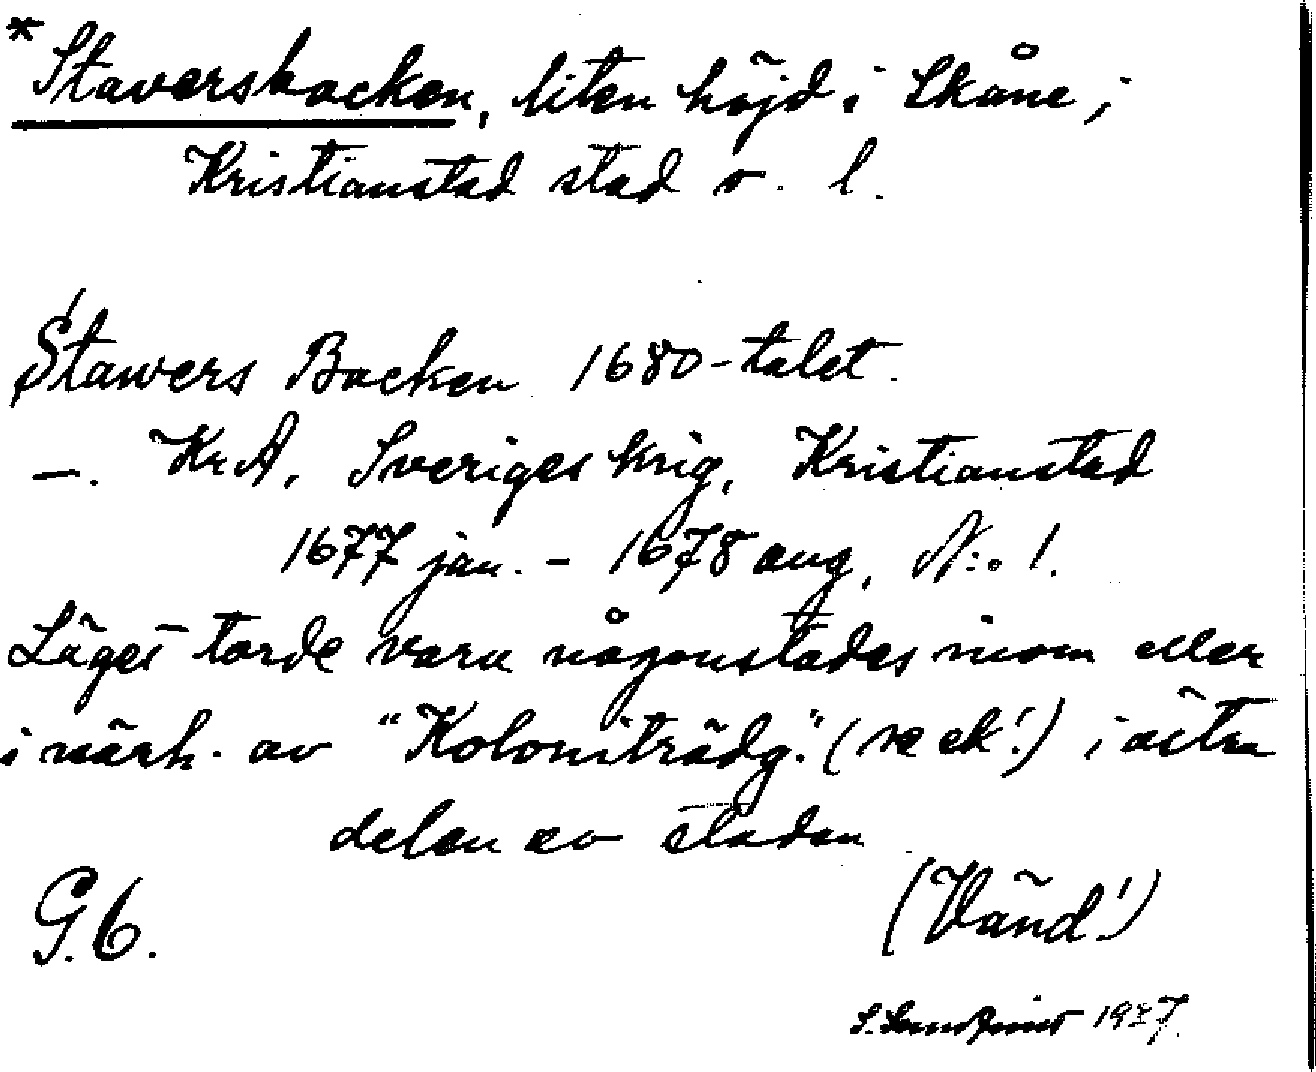 *Staversbacken, liten höjd i Skåne;
Kristianstad stad o. l.
Stawers Backen 1680-talet.
—. KrA, Sveriges krig, Kristianstad
1677 jan. - 1678 aug, N:o 1.
Läget torde vara någonstades inom eller
i närh. av "Koloniträdg." (se ek!) i östra
delen av staden
G.6.
(Vänd!)
1927.